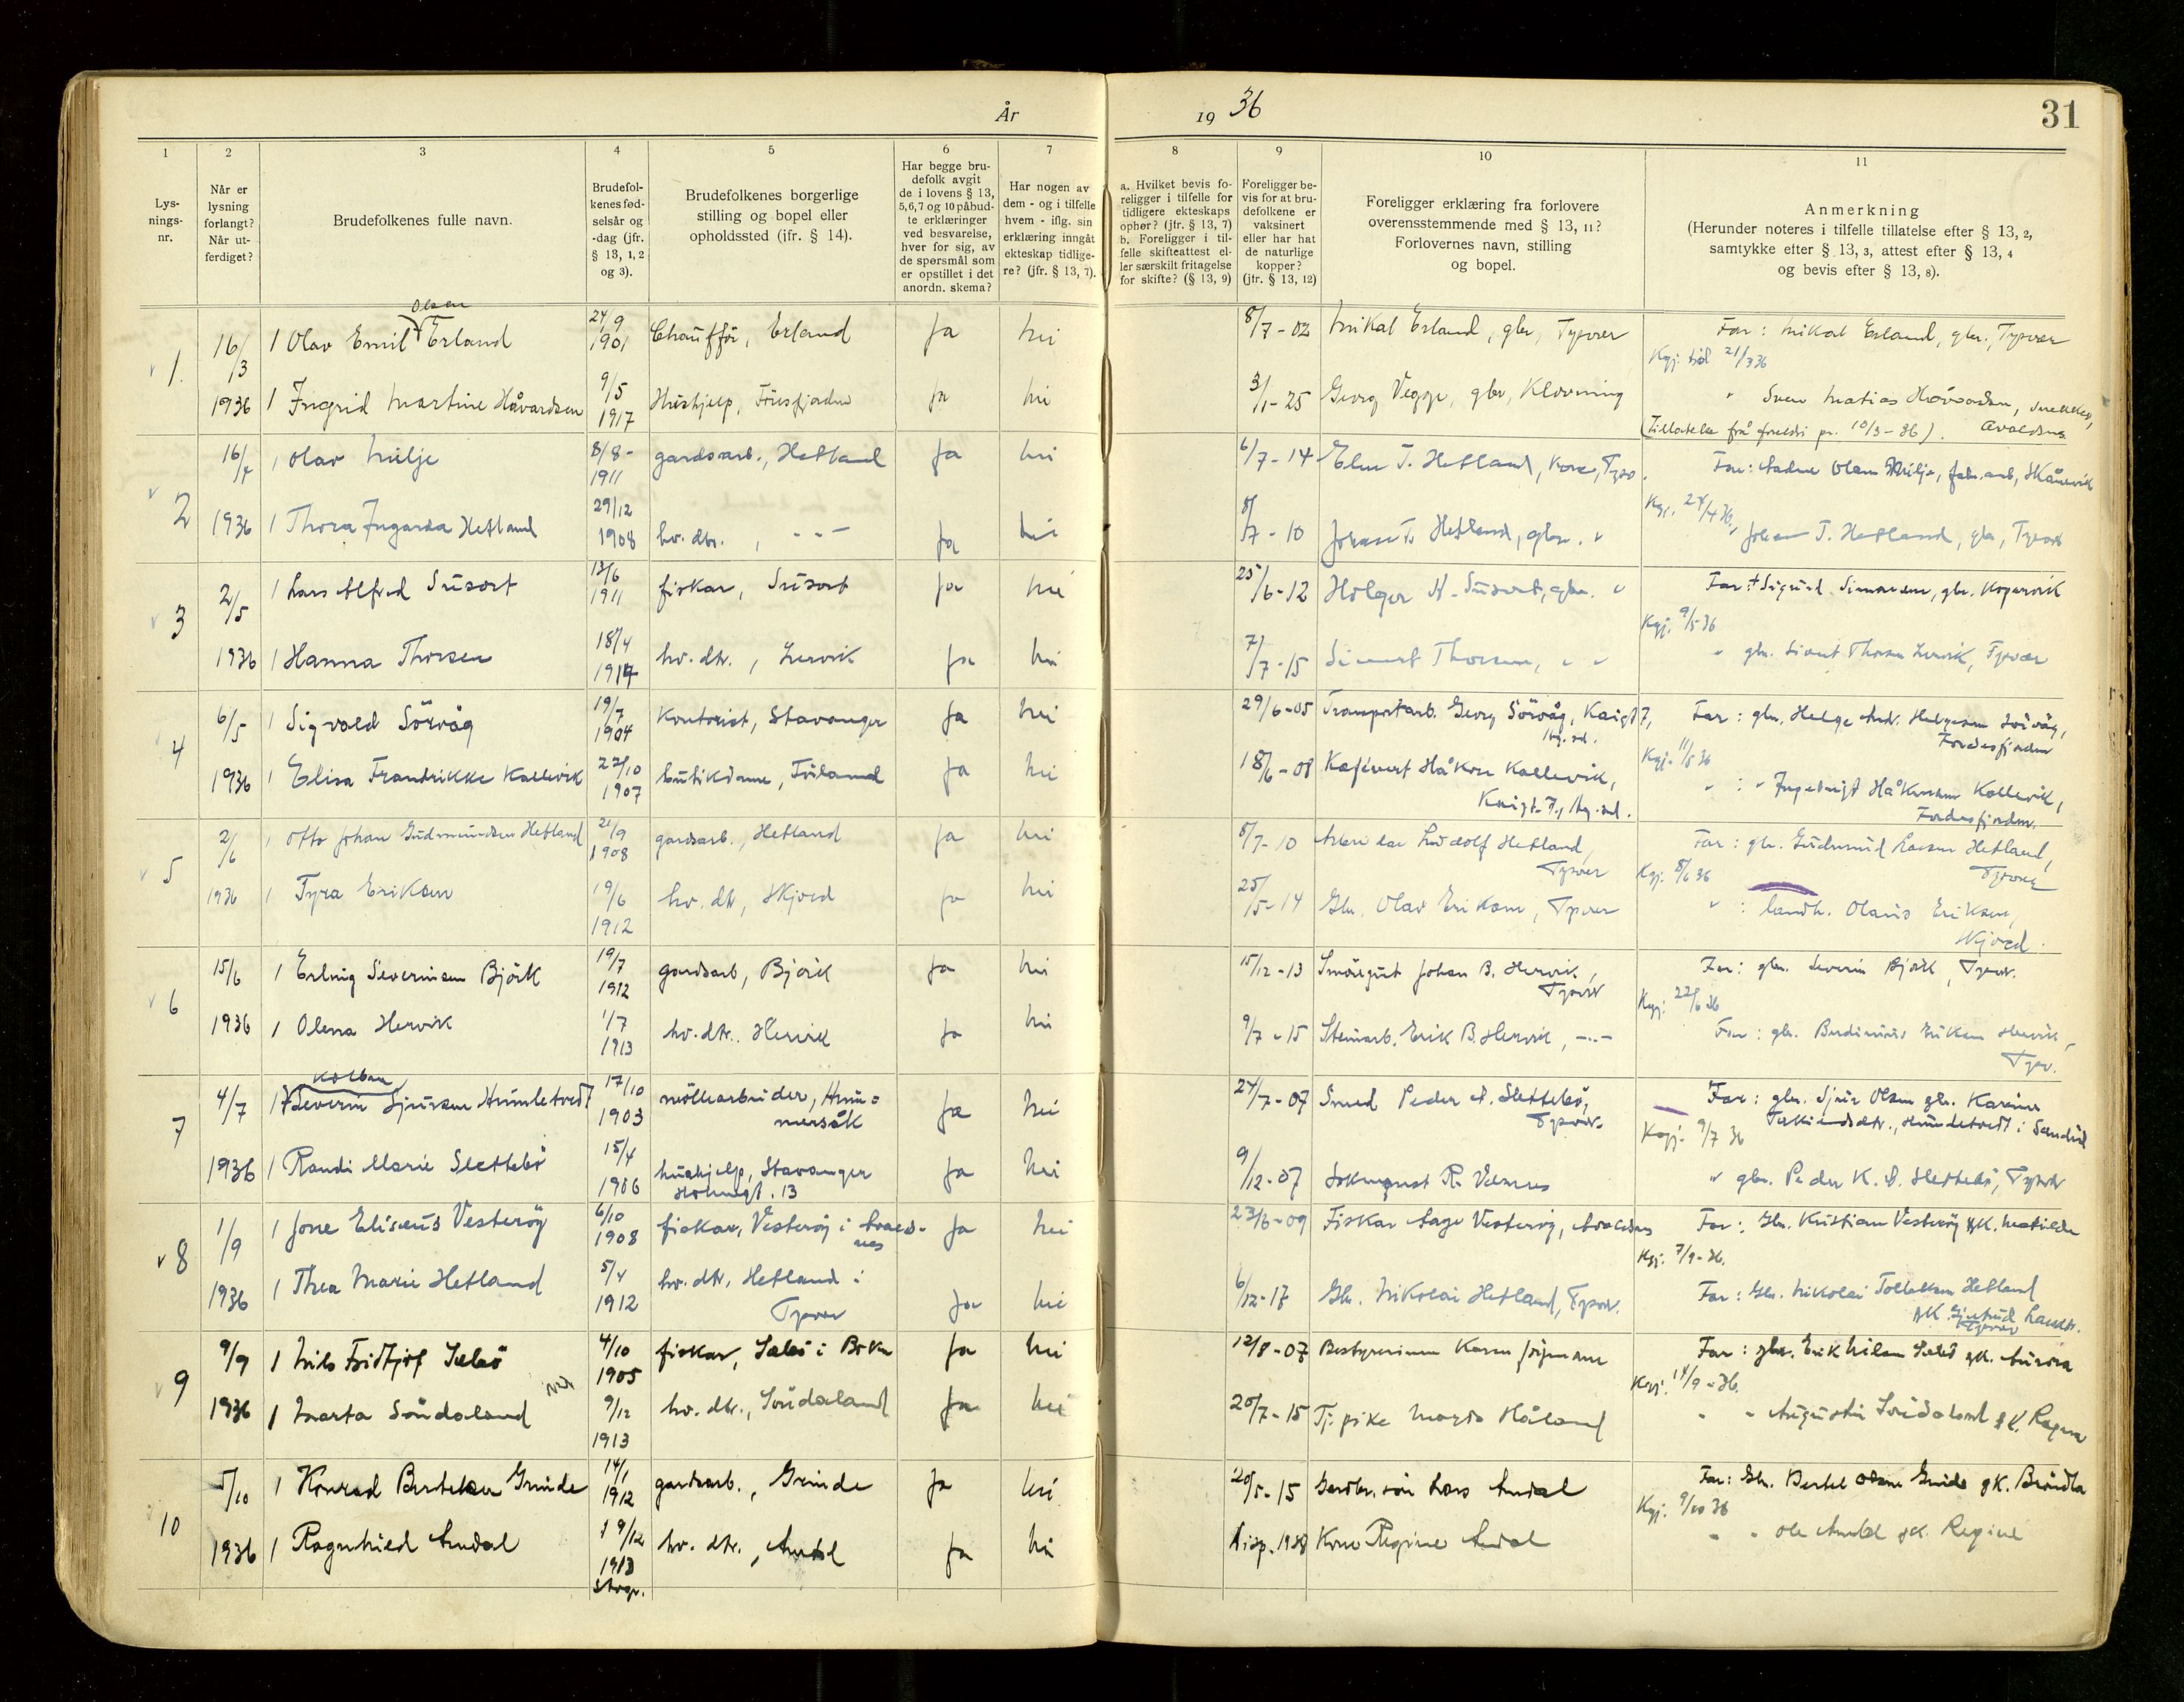 År 1936
31
1 2 3 4 5 6 7 8 9 10 11
Lys-
nings-
nr.
Når er
lysning
forlangt?
Når ut-
ferdiget?
Brudefolkenes fulle navn.
Brudefol-
kenes fød-
selsår og
-dag (jfr.
§ 13, 1, 2
og 3).
Brudefolkenes borgerlige
stilling og bopel eller
opholdssted (jfr. § 14).
Har begge bru-
defolk avgit
de i lovens § 13,
5, 6, 7 og 10 påbud-
te erklæringer
ved besvarelse,
hver for sig, av
de spørsmål som
er opstillet i det
anordn. skema?
Har nogen av
dem - og i tilfelle
hvem - iflg. sin
erklæring inngåt
ekteskap tidlige-
re? (jfr. § 13, 7).
a. Hvilket bevis fo-
religger i tilfelle for
tidligere ekteskaps
ophør? (jfr. § 13, 7)
b. Foreligger i til-
felle skifteattest el-
ler særskilt fritagelse
for skifte? (§ 13, 9)
Foreligger be-
vis for at bru-
defolkene er
vaksinert
eller har hat
de naturlige
kopper?
(jfr. § 13, 12)
Foreligger erklæring fra forlovere
overensstemmende med § 13, 11?
Forlovernes navn, stilling
og bopel.
Anmerkning
(Herunder noteres i tilfelle tillatelse efter § 13, 2,
samtykke efter § 13, 3, attest efter § 13, 4
og bevis efter § 13, 8).
Olsen
1. 16/3 1 Olav Emil Erland 24/9 1901 Chauffør, Erland Ja Nei 8/7-02 Mikal Erland, gbr, Tysvær Far: Mikal Erland, gbr., Tysvær
Kgj. 21/3 36
1936 1 Ingrid Martine Håvardsen 9/5 1917 Hushjelp, Ja Nei 3/1-25 Georg Vegge, gbr, Klovning " Sven Matias
(Tillatelse frå foreldri pr. 10/3-36). Avaldsnes
2 16/7 1 Olav Milje 8/8- 1911 gardsarb., Hetland Ja Nei 6/7-14 T. Hetland, Far: Olsen Milje, Skånevik
Kgj. 24/4 36
1936 1 Thora Ingarda Hetland 29/12 1908 hv. dtr., -"- Ja Nei 8/7-10 Johan T. Hetland, gbr. " Johan T. Hetland, gbr, Tysvær
3 2/5 1 Lars Alfred Susort 13/6 1911 fiskar, Susort Ja Nei 25/6-12 Holger Susort, gbr. " Far: + Sigurd Simonsen, gbr. Kopervik
Kgj. 9/5 36
1936 1 Hanna Thorsen 18/4 1914 hv. dtr., Ja Nei 7/7-15 Sivert Thorsen, " " " gbr. Sivert Thorsen Tysvær
4 6/5 1 Sigvald Sörvåg 19/7 1904 Kontorist, Stavanger Ja Nei 29/6-05 Transportarb. Georg Sörvåg, Far: gbr. Helge Andr. Helgesen Sörvåg,
Førdesfjorden
Kgj. 11/5 36
1936 1 Elisa Fredrikke Kallevik 22/10 1907 butikdame, Ja Nei 18/6-08 Håkon Kallevik, " : " Håkonsen Kallevik,
Førdesfjorden
5 2/6 1 Otto Johan Gudmundsen Hetland 21/9 1908 gardsarb., Hetland Ja Nei 8/7-10 Arbeidar Ludolf Hetland, Far: gbr. Gudmund Larsen Hetland,
Tysvær Tysvær
Kgj. 8/6 36
1936 1 Tyra Eriksen 19/6 1912 hv. dtr, Skjold Ja Nei 25/5-14 Gbr. Olav Eriksen, Tysvær " : landh. Olaus Eriksen,
Skjold.
6 15/6 1 Erling Severinsen Björk 19/7 1912 gardsarb, Björk Ja Nei 15/12-13 Johan B. Hervik, Far: gbr. Severin Björk, Tysvær.
Tysvær
Kgj. 22/6 36
1936 1 Olena Hervik 1/7 1913 hv. dtr. Hervik Ja Nei 9/7-15 Steinarb. Erik B. Hervik, -"- Far: gbr. Eriksen Hervik,
Tysv.
7 4/7 1 Severin Sjursen 17/10 1903 möllearbeider, Hum-
mersåk Ja Nei 24/7-07 Smed Peder Slettebö, Far: gbr. Sjur Olsen
Tysvær
Kgj. 9/7 36
1936 1 Randi Marie Slettebö 15/4 1906 hushjelp, Stavanger
13 Ja Nei 9/12-07 " gbr. Peder K. Slettebö, Tysvær
8 1/9 1 Jone Eliseus Vesteröy 6/10 1908 fiskar, Vesteröy i Avalds-
nes Ja Nei 23/6-09 Fiskar Aage Vesteröy, Avaldsnes Far: Gbr. Kristian Vesteröy gk. Matilde
Kgj. 7/9-36.
1936 1 Thea Marie Hetland 5/4 1912 hv. dtr, Hetland i
Tysvær Ja Nei 6/12-17 Gbr. Nikolai Hetland, Tysvær. Far: Gbr. Nikolai Tollefsen Hetland
gk. Gjertrud
Tysvær
9 9/9 1 Nils Fridtjof Salbö 4/10 1905 fiskar, Salbö i Bokn Ja Nei 12/8-07 Bestyrerinne Karen Far: gbr. Erik Nilsen gk. Aurora
Kgj. 14/9-36.
1936 1 Marta Söndaland 9/12 1913 hv. dtr., Ja Nei 20/7-15 Tj. pike Marta Håland " " Augustin gk.
10 5/10 1 Konrad Bertelsen Grinde 14/1 1912 gardsarb., Grinde Ja Nei 20/5-15 Gardbr. sön Lars Amdal Far: Gbr. Bertel Olsen Grinde gk.
Kgj. 9/10 36
1936 1 Ragnhild Amdal 19/12 1913 hv. dtr., Amdal Ja Nei Kone Regine Amdal " " Ole Amdal gk. Regine